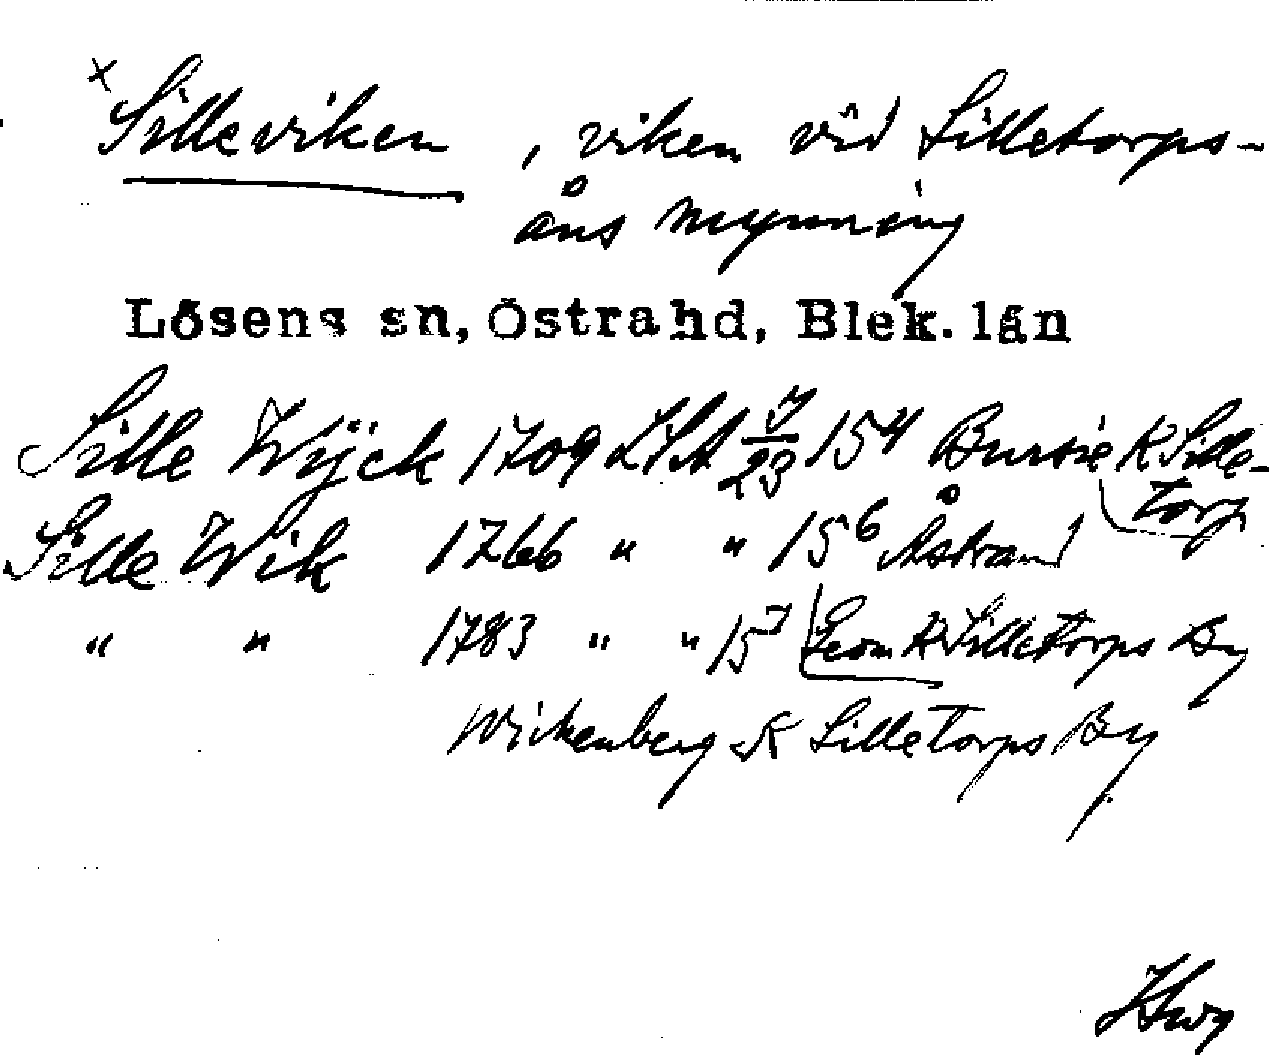 x Silleviken, viken vid Silletorps-
åns mynning
Lösens sn, Östra hd, Blek. län
Sille Wÿck 1709 LSA J/23 15⁴ Bursie K Sille-
torp
Sille Wik 1766 " " 15⁶ Åstrand
" " 1783 " " 15⁷ Geom K Silletorps By
Wickenberg K Silletorps By